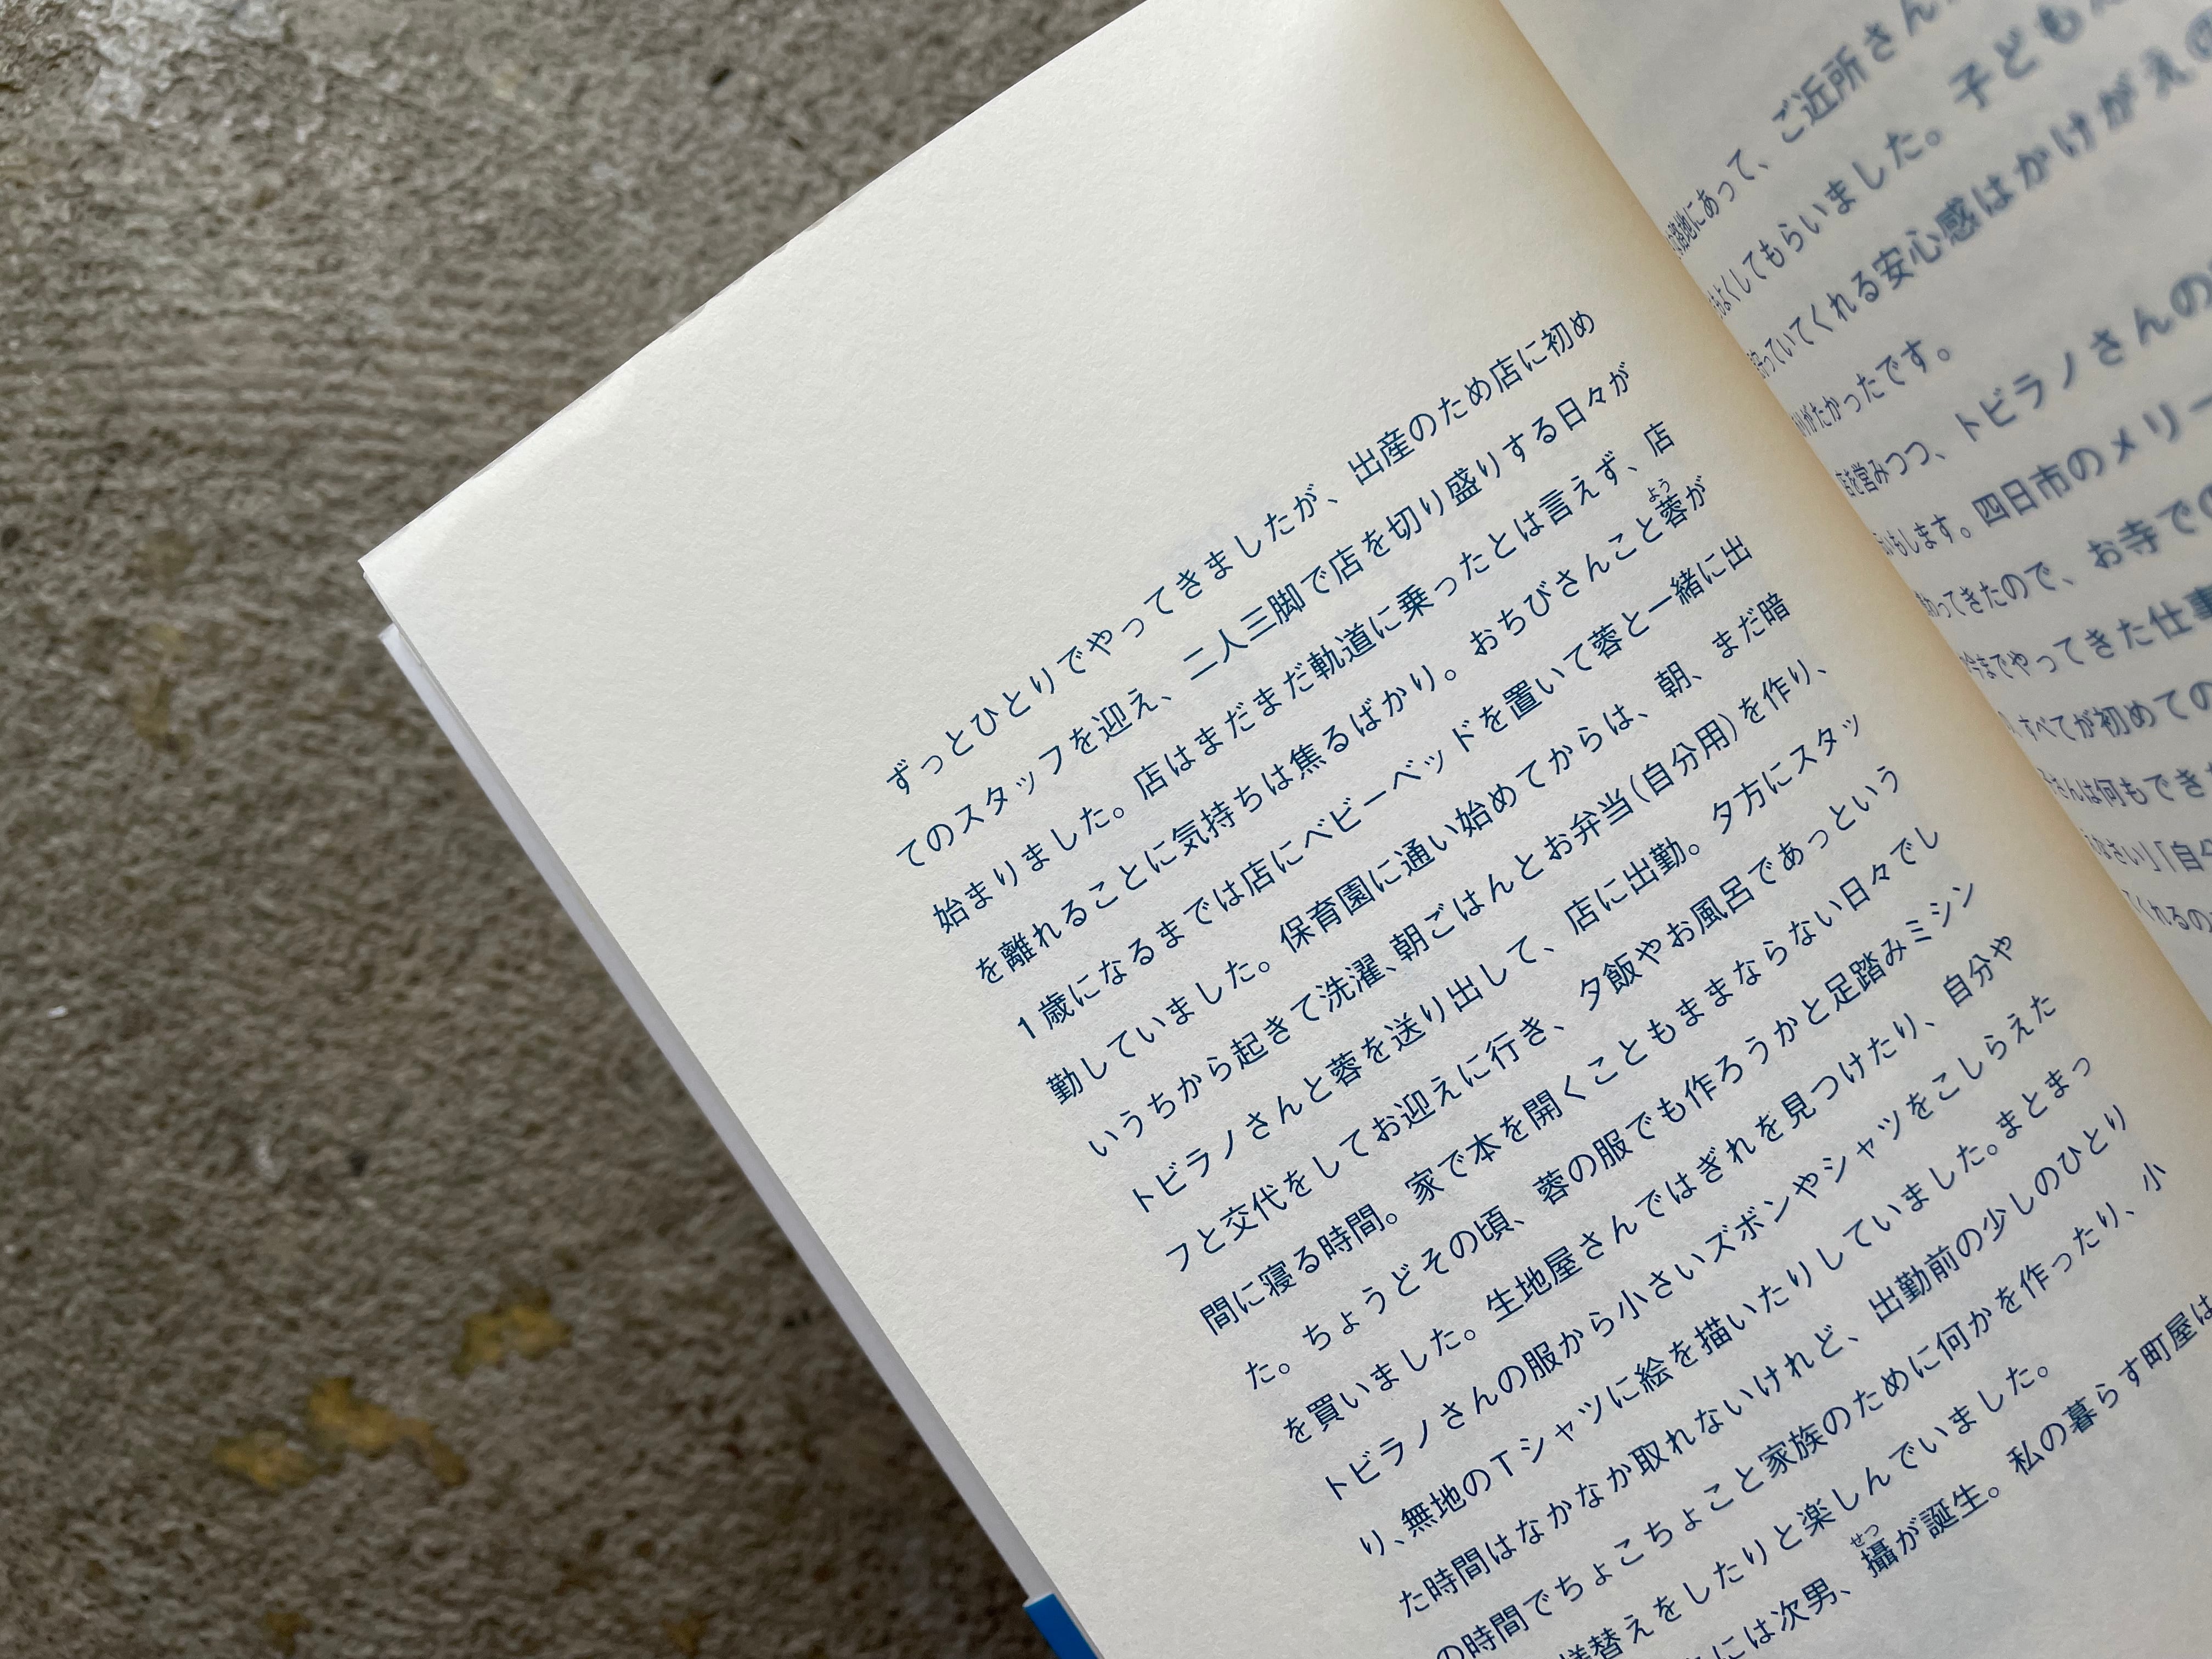 ずっとひとりでやってきましたが、出産のため店に初め
てのスタッフを迎え、二人三脚で店を切り盛りする日々が
始まりました。店はまだまだ軌道に乗ったとは言えず、店
を離れることに気持ちは焦るばかり。おちびさんこと蓉が
よう
1歳になるまでは店にベビーベッドを置いて蓉と一緒に出
勤していました。保育園に通い始めてからは、朝、まだ暗
いうちから起きて洗濯、朝ごはんとお弁当(自分用)を作り、
トビラノさんと蓉を送り出して、店に出勤。夕方にスタッ
フと交代をしてお迎えに行き、夕飯やお風呂であっという
間に寝る時間。家で本を開くこともままならない日々でし
た。ちょうどその頃、蓉の服でも作ろうかと足踏みミシン
を買いました。生地屋さんではぎれを見つけたり、自分や
トビラノさんの服から小さいズボンやシャツをこしらえた
り、無地のTシャツに絵を描いたりしていました。まとまっ
た時間はなかなか取れないけれど、出勤前の少しのひとり
の時間でちょこちょこと家族のために何かを作ったり、小
替えをしたりと楽しんでいました。
には次男、攝が誕生。私の暮らす町屋は
せつ
にあって、ご近所さん
よくしてもらいました。子ども
っていてくれる安心感はかけがえの
がたかったです。
営みつつ、トビラノさんの
もします。四日市のメリー
わってきたので、お寺での
今までやってきた仕事
すべてが初めての
さんは何もでき
なさい」「自
くれるの